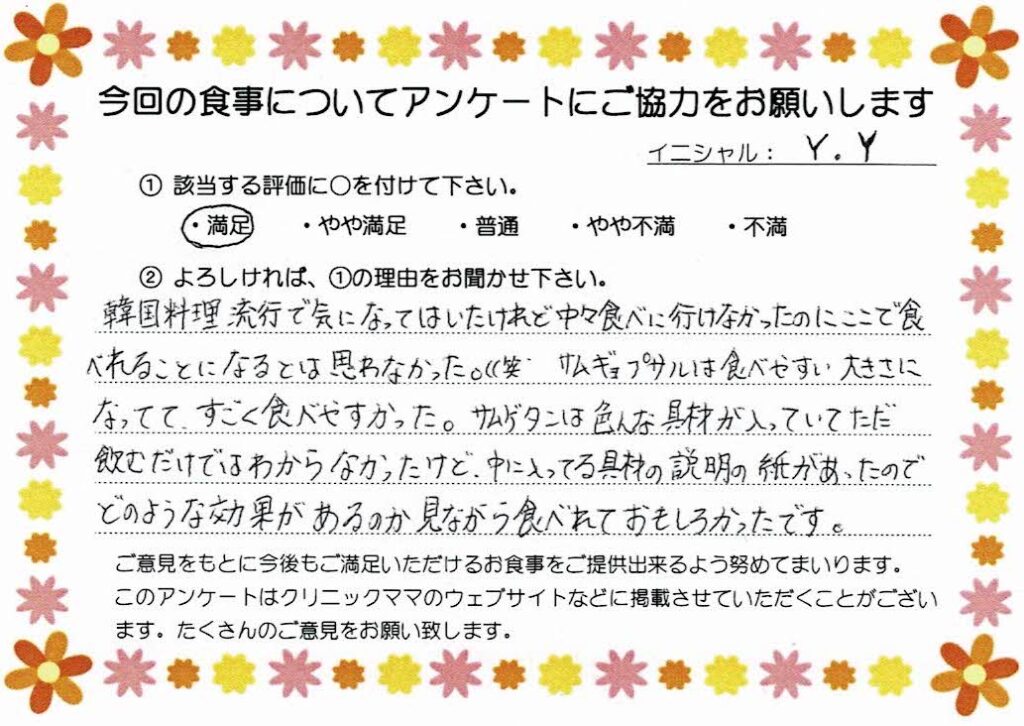 今回の食事についてアンケートにご協力をお願いします
イニシャル： Y.Y
① 該当する評価に○を付けて下さい。
・満足 ・やや満足 ・普通 ・やや不満 ・不満
② よろしければ、①の理由をお聞かせ下さい。
韓国料理流行で気になってはいたけれど中々食べに行けなかったのにここで食
べれることになるとは思わなかった。((笑 サムギョプサルは食べやすい大きさに
なってて、すごく食べやすかった。サムゲタンは色んな具材が入っていてただ
飲むだけではわからなかったけど、中に入ってる具材の説明の紙があったので
どのような効果があるのか見ながら食べれておもしろかったです。
ご意見をもとに今後もご満足いただけるお食事をご提供出来るよう努めてまいります。
このアンケートはクリニックママのウェブサイトなどに掲載させていただくことがござい
ます。たくさんのご意見をお願い致します。